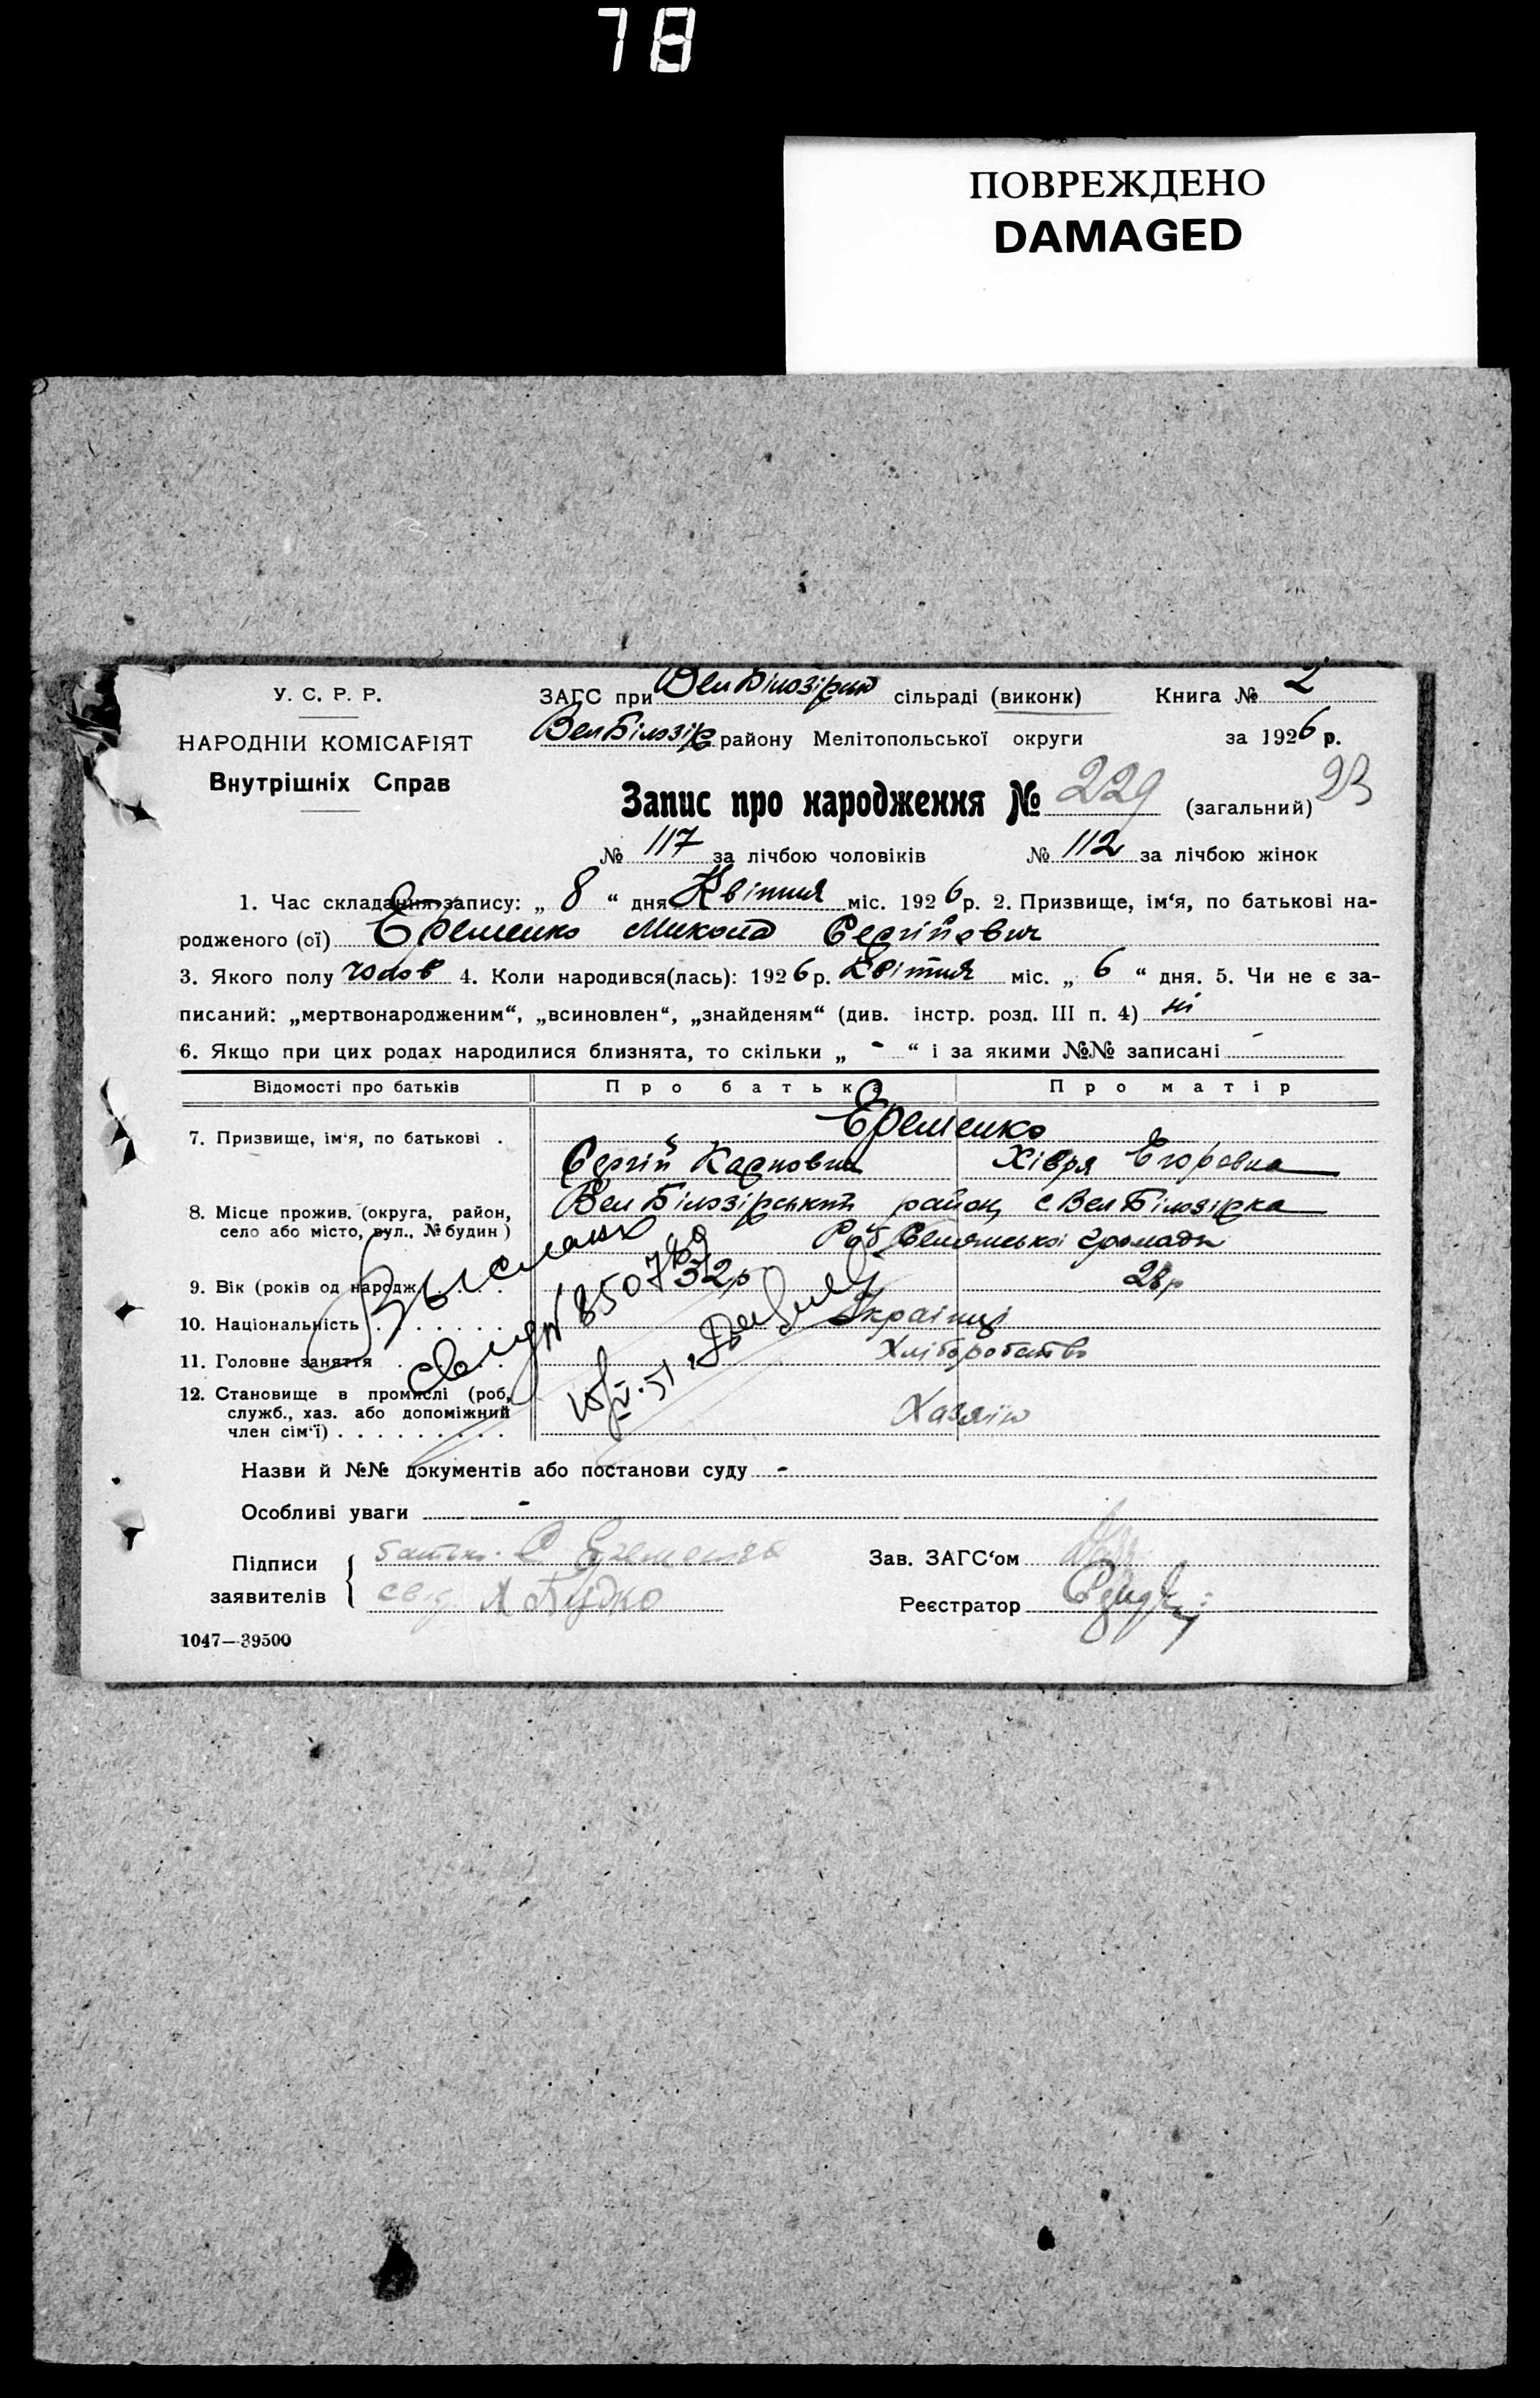 78
ПОВРЕЖДЕНО
DAMAGED
У. С. Р. Р.
ЗАГС при Вел Білозірськ сільраді (виконк) Книга № 2
НАРОДНІЙ КОМІСАРІЯТ
Вел Білозір району Мелітопольської округи за 1926 р.
Внутрішніх Справ
Запис про народження № 229 (загальний) 23
№ 117 за лічбою чоловіків № 112 за лічбою жінок
1. Час складання запису: „ 8 “ дня Квітня міс. 1926 р. 2. Призвище, ім‘я, по батькові на-
родженого (ої) Еременко Микола Сергійович
3. Якого полу чолов 4. Коли народився(лась): 1926 р. Квітня міс. „ 6 “ дня. 5. Чи не є за-
писаний: „мертвонародженим“, „всиновлен“, „знайденям“ (див. інстр. розд. III п. 4) ні
6. Якщо при цих родах народилися близнята, то скільки „ - “ і за якими №№ записані -
Відомості про батьків Про батька Про матір
7. Призвище, ім‘я, по батькові . Еременко
Сергій Карпович Хівря Егоровна
8. Місце прожив. (округа, район, село або місто, вул., № будин) Вел Білозірський район, с Вел Білозірка
громади
9. Вік (років од народж. 32р 28р
10. Національність . Українці
11. Головне заняття . Хліборобство
12. Становище в промислі (роб, служб., хаз. або допоміжний член сім‘ї) . Хазяїн
Выслано
свид № 850789
Назви й №№ документів або постанови суду -
Особливі уваги -
Підписи заявителів
батько. С Еременко
свід. Я Будко
Зав. ЗАГС‘ом
Реєстратор
1047—39500